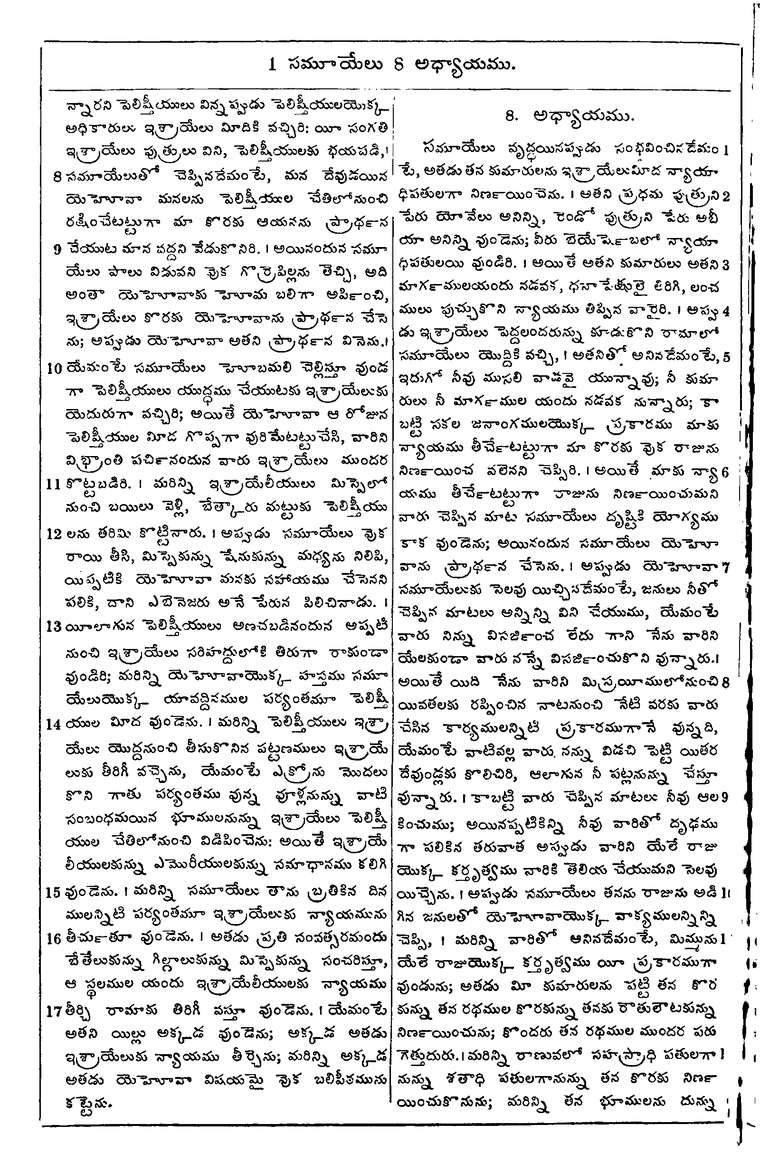 1 సమూయేలు 8 అధ్యాయము.
న్నారని పెలిష్తీయులు విన్నప్పుడు పెలిష్తీయులయొక్క
అధికారులు ఇశ్రాయేలు మీదికి వచ్చిరి: యీ సంగతి
ఇశ్రాయేలు పుత్రులు విని, పెలిష్తీయులకు భయపడి,।
8 సమూయేలుతో చెప్పినదేమంటే, మన దేవుడయిన
యెహోవా మనలను పెలిష్తీయుల చేతిలోనుంచి
రక్షించేటట్టుగా మా కొరకు ఆయనను ప్రార్థన
9 చేయుట మాన వద్దని వేడుకొనిరి. । అయినందున సమూ
యేలు పాలు విడువని వొక గొర్రెపిల్లను తెచ్చి, అది
అంతా యెహోవాకు హోమ బలిగా అర్పించి,
ఇశ్రాయేలు కొరకు యెహోవాను ప్రార్థన చేసె
ను; అప్పుడు యెహోవా అతని ప్రార్థన వినెను.।
10 యేమంటే సమూయేలు హోబమలి చెల్లిస్తూ వుండ
గా పెలిష్తీయులు యుద్ధము చేయుటకు ఇశ్రాయేలుకు
యెదురుగా వచ్చిరి; అయితే యెహోవా ఆ రోజున
పెలిష్తీయుల మీద గొప్పగా వురిమేటట్టుచేసి, వారిని
విభ్రాంతి పర్చినందున వారు ఇశ్రాయేలు ముందర
11 కొట్టబడిరి. । మరిన్ని ఇశ్రాయేలీయులు మిస్పెలో
నుంచి బయిలు వెళ్లి, బేత్కారు మట్టుకు పెలిష్తీయు
12 లను తరిమి కొట్టినారు. । అప్పుడు సమూయేలు వొక
రాయి తీసి, మిస్పెకున్ను షేనుకున్ను మధ్యను నిలిపి,
యిప్పటికి యెహోవా మనకు సహాయము చేసెనని
పలికి, దాని ఎబెనెజరు అనే పేరున పిలిచినాడు. ।
13 యీలాగున పెలిష్తీయులు అణచబడినందున అప్పటి
నుంచి ఇశ్రాయేలు సరిహద్దులోకి తిరుగా రాకుండా
వుండిరి; మరిన్ని యెహోవాయొక్క హస్తము సమూ
యేలుయొక్క యావద్దినముల పర్యంతమూ పెలిష్తీ
14 యుల మీద వుండెను. । మరిన్ని పెలిష్తీయులు ఇశ్రా
యేలు యొద్దనుంచి తీసుకొనిన పట్టణములు ఇశ్రాయే
లుకు తిరిగీ వచ్చెను, యేమంటే ఎక్రోను మొదలు
కొని గాతు పర్యంతము వున్న వూళ్లనున్ను వాటి
సంబంధమయిన భూములనున్ను ఇశ్రాయేలు పెలిష్తీ
యుల చేతిలోనుంచి విడిపించెను: అయితే ఇశ్రాయే
లీయులకున్ను ఎమోరీయులకున్ను సమాధానము కలిగి
15 వుండెను. । మరిన్ని సమూయేలు తాను బ్రతికిన దిన
ములన్నిటి పర్యంతమూ ఇశ్రాయేలుకు న్యాయమును
16 తీర్చుతూ వుండెను. । అతడు ప్రతి సంవత్సరమందు
బేతేలుకున్ను గిల్గాలుకున్ను మిస్పెకున్ను సంచరిస్తూ,
ఆ స్థలముల యందు ఇశ్రాయేలీయులకు న్యాయము
17 తీర్చి రామాకు తిరిగీ వస్తూ వుండెను. । యేమంటే
అతని యిల్లు అక్కడ వుండెను; అక్కడ అతడు
ఇశ్రాయేలుకు న్యాయము తీర్చెను; మరిన్ని అక్కడ
అతడు యెహోవా విషయమై వొక బలిపీఠమును
కట్టెను.
8. అధ్యాయము.
సమూయేలు వృద్ధయినప్పుడు సంభవించినదేమం 1
టే, అతడు తన కుమారులను ఇశ్రాయేలుమీద న్యాయా
ధిపతులగా నిర్ణయించెను. । అతని ప్రథమ పుత్రుని 2
పేరు యోవేలు అనిన్ని, రెండో పుత్రుని పేరు అబీ
యా అనిన్ని వుండెను; వీరు బెయేర్షెబలో న్యాయా
ధిపతులయి వుండిరి. । అయితే అతని కుమారులు అతని 3
మార్గములయందు నడవక, ధనాపేక్షులై తిరిగి, లంచ
ములు పుచ్చుకొని న్యాయము తిప్పిన వారైరి. । అప్పు 4
డు ఇశ్రాయేలు పెద్దలందరున్ను కూడుకొని రామాలో
సమూయేలు యొద్దికి వచ్చి, । అతనితో అనినదేమంటే, 5
ఇదుగో నీవు ముసలి వాడవై యున్నావు; నీ కుమా
రులు నీ మార్గముల యందు నడవక నున్నారు; కా
బట్టి సకల జనాంగములయొక్క ప్రకారము మాకు
న్యాయము తీర్చేటట్టుగా మా కొరకు వొక రాజును
నిర్ణయించ వలెనని చెప్పిరి. । అయితే మాకు న్యా 6
యము తీర్చేటట్టుగా రాజును నిర్ణయించుమని
వారు చెప్పిన మాట సమూయేలు దృష్టికి యోగ్యము
కాక వుండెను; అయినందున సమూయేలు యెహో
వాను ప్రార్థన చేసెను. । అప్పుడు యెహోవా 7
సమూయేలుకు సెలవు యిచ్చినదేమంటే, జనులు నీతో
చెప్పిన మాటలు అన్నిన్ని విని చేయుము, యేమంటే
వారు నిన్ను విసర్జించ లేదు గాని నేను వారిని
యేలకుండా వారు నన్నే విసర్జించుకొని వున్నారు.।
అయితే యిది నేను వారిని మిస్రయిములోనుంచి 8
యివతలకు రప్పించిన నాటనుంచి నేటి వరకు వారు
చేసిన కార్యములన్నిటి ప్రకారముగానే వున్నది,
యేమంటే వాటివల్ల వారు నన్ను విడచి పెట్టి యితర
దేవుండ్లకు కొలిచిరి, ఆలాగున నీ పట్లనున్ను చేస్తూ
వున్నారు. । కాబట్టి వారు చెప్పిన మాటలు నీవు ఆల 9
కించుము; అయినప్పటికిన్ని నీవు వారితో దృఢము
గా పలికిన తరువాత అప్పుడు వారిని యేలే రాజు
యొక్క కర్తృత్వము వారికి తెలియ చేయుమని సెలవు
యిచ్చెను. । అప్పుడు సమూయేలు తనను రాజును అడి 1
గిన జనులతో యెహోవాయొక్క వాక్యములన్నిన్ని
చెప్పి, । మరిన్ని వారితో ఆనినదేమంటే, మిమ్మును 1
యేలే రాజుయొక్క కర్తృత్వము యీ ప్రకారముగా
వుండును; అతడు మీ కుమారులను పట్టి తన కొర
కున్ను తన రథముల కొరకున్ను తనకు రౌతులౌటకున్ను
నిర్ణయించును; కొందరు తన రథముల ముందర పరు
గెత్తుదురు. । మరిన్ని రాణువలో సహస్రాధి పతులగా 1
నున్ను శతాధి పతులగానున్ను తన కొరకు నిర్ణ
యించుకొనును; మరిన్ని తన భూములను దున్ను